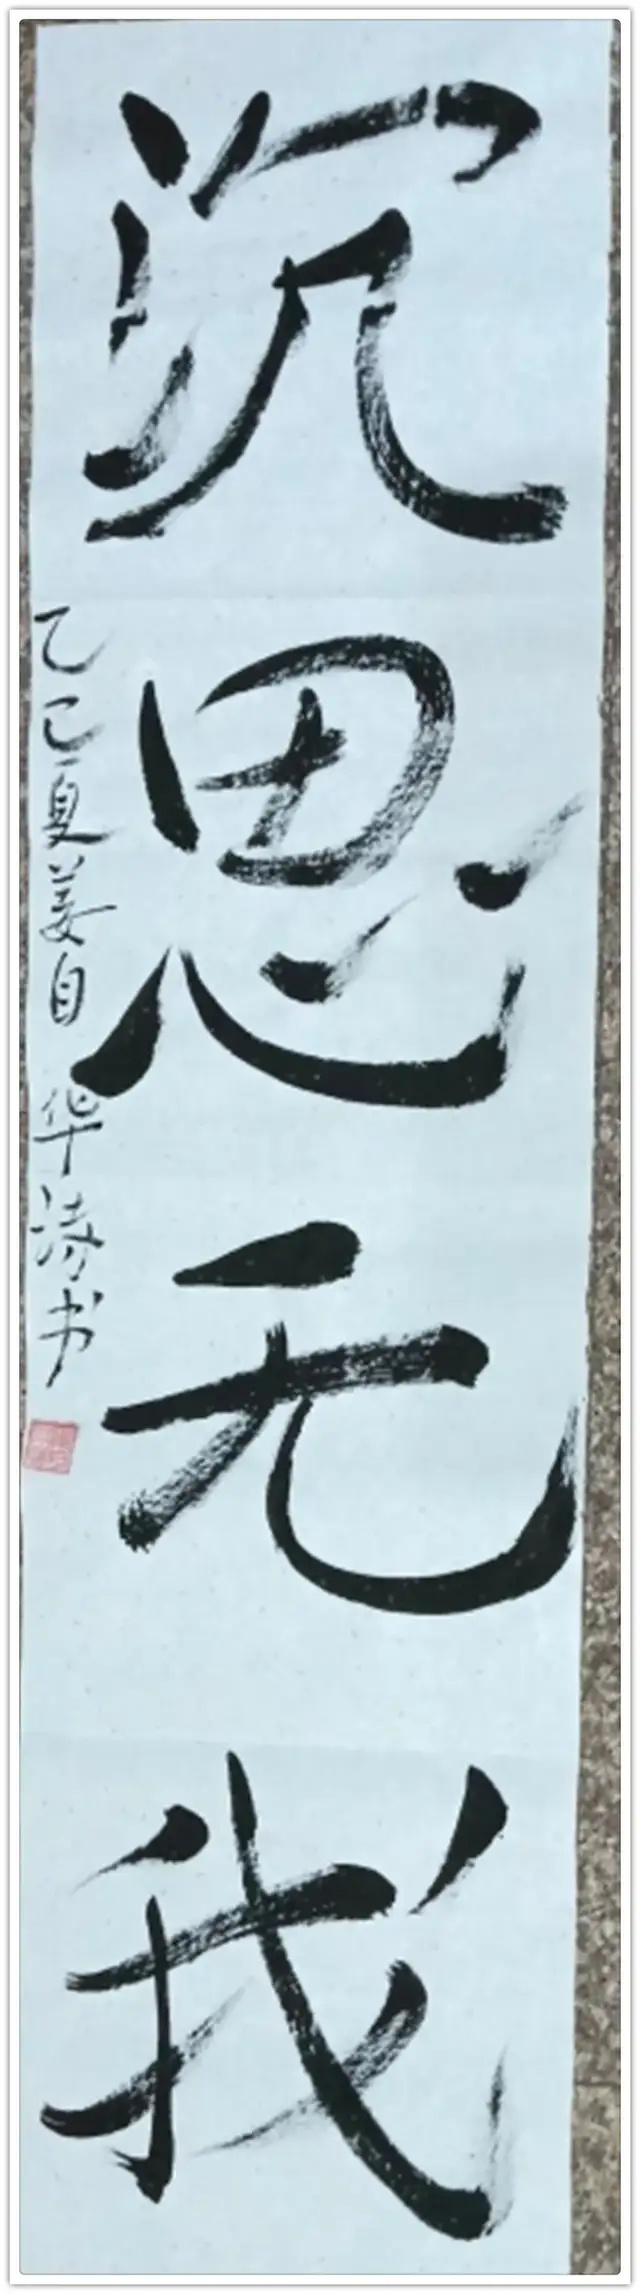 沉思无我
乙巳夏姜自华涛书